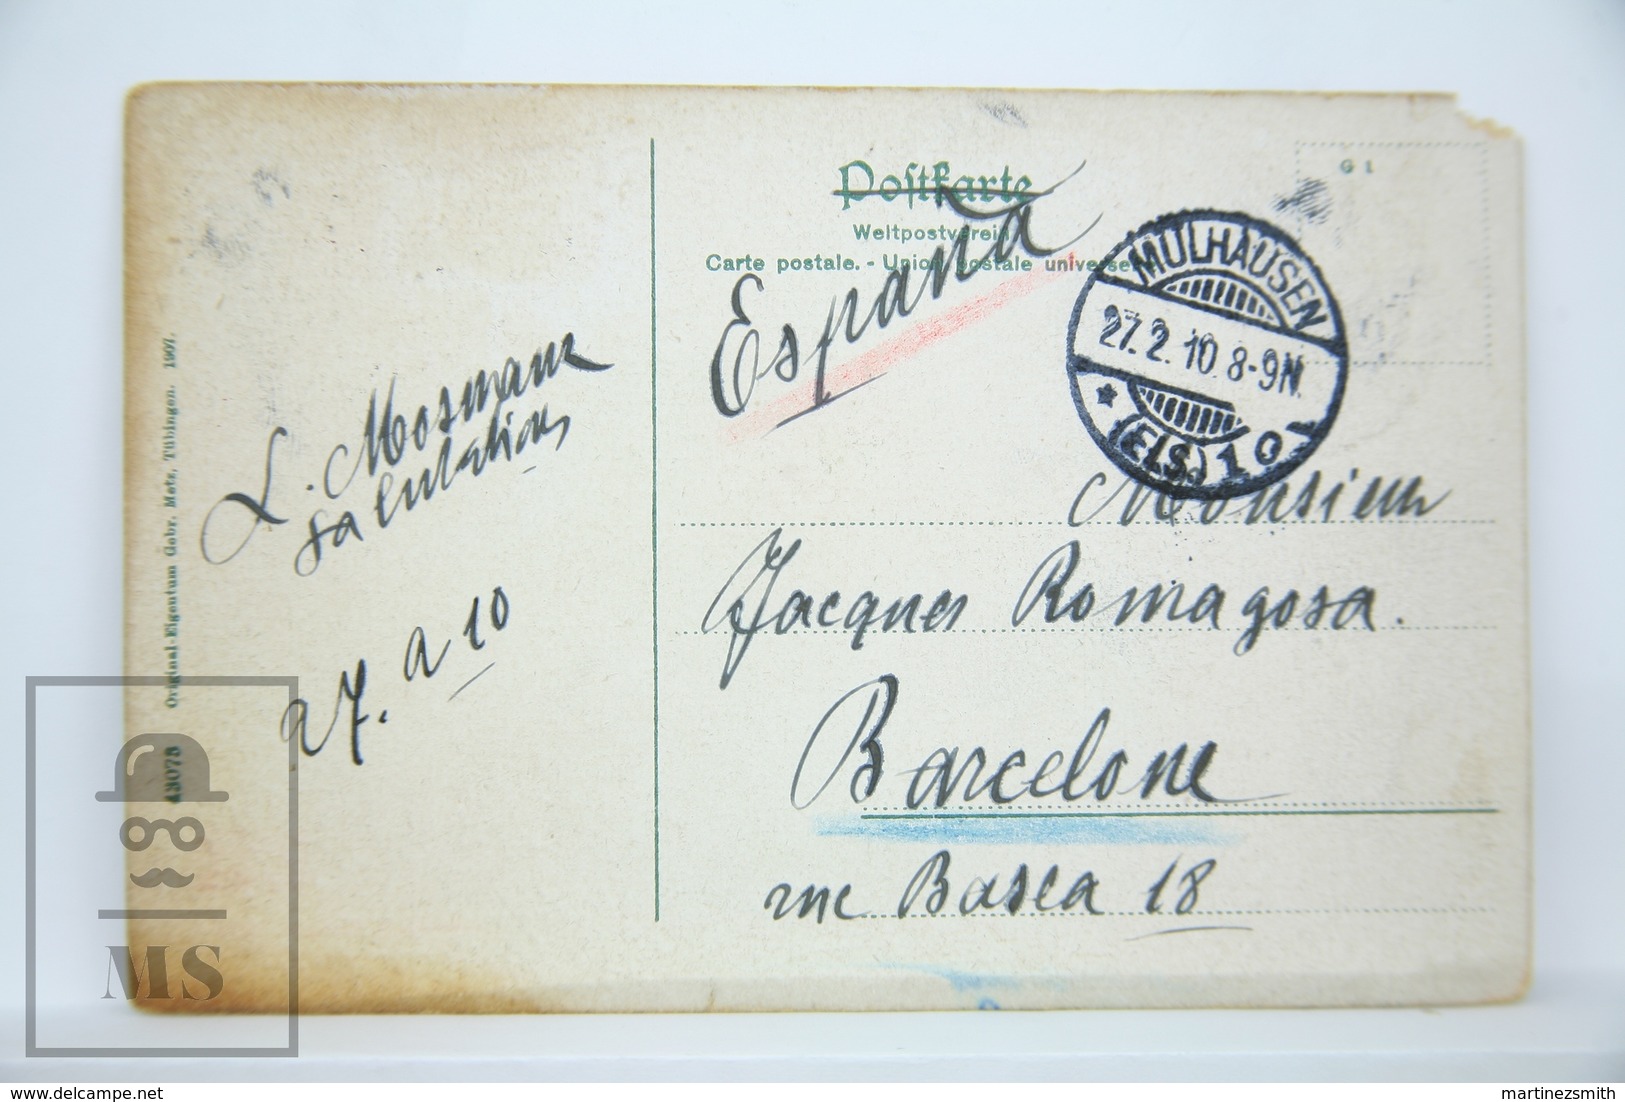 Postkarte
Weltpostverein
Carte postale. - Union postale universelle
G 1
España
MÜLHAUSEN
27.2.10.8-9N.
* (ELS.) 1 o
L. Mosmann
salutations
27. 2 10
Monsieur
Jacques Romagosa.
Barcelone
rue Basea 18
43073 Original-Eigentum Gebr. Metz, Tübingen. 1907.
MS
www.delcampe.net
martinezsmith